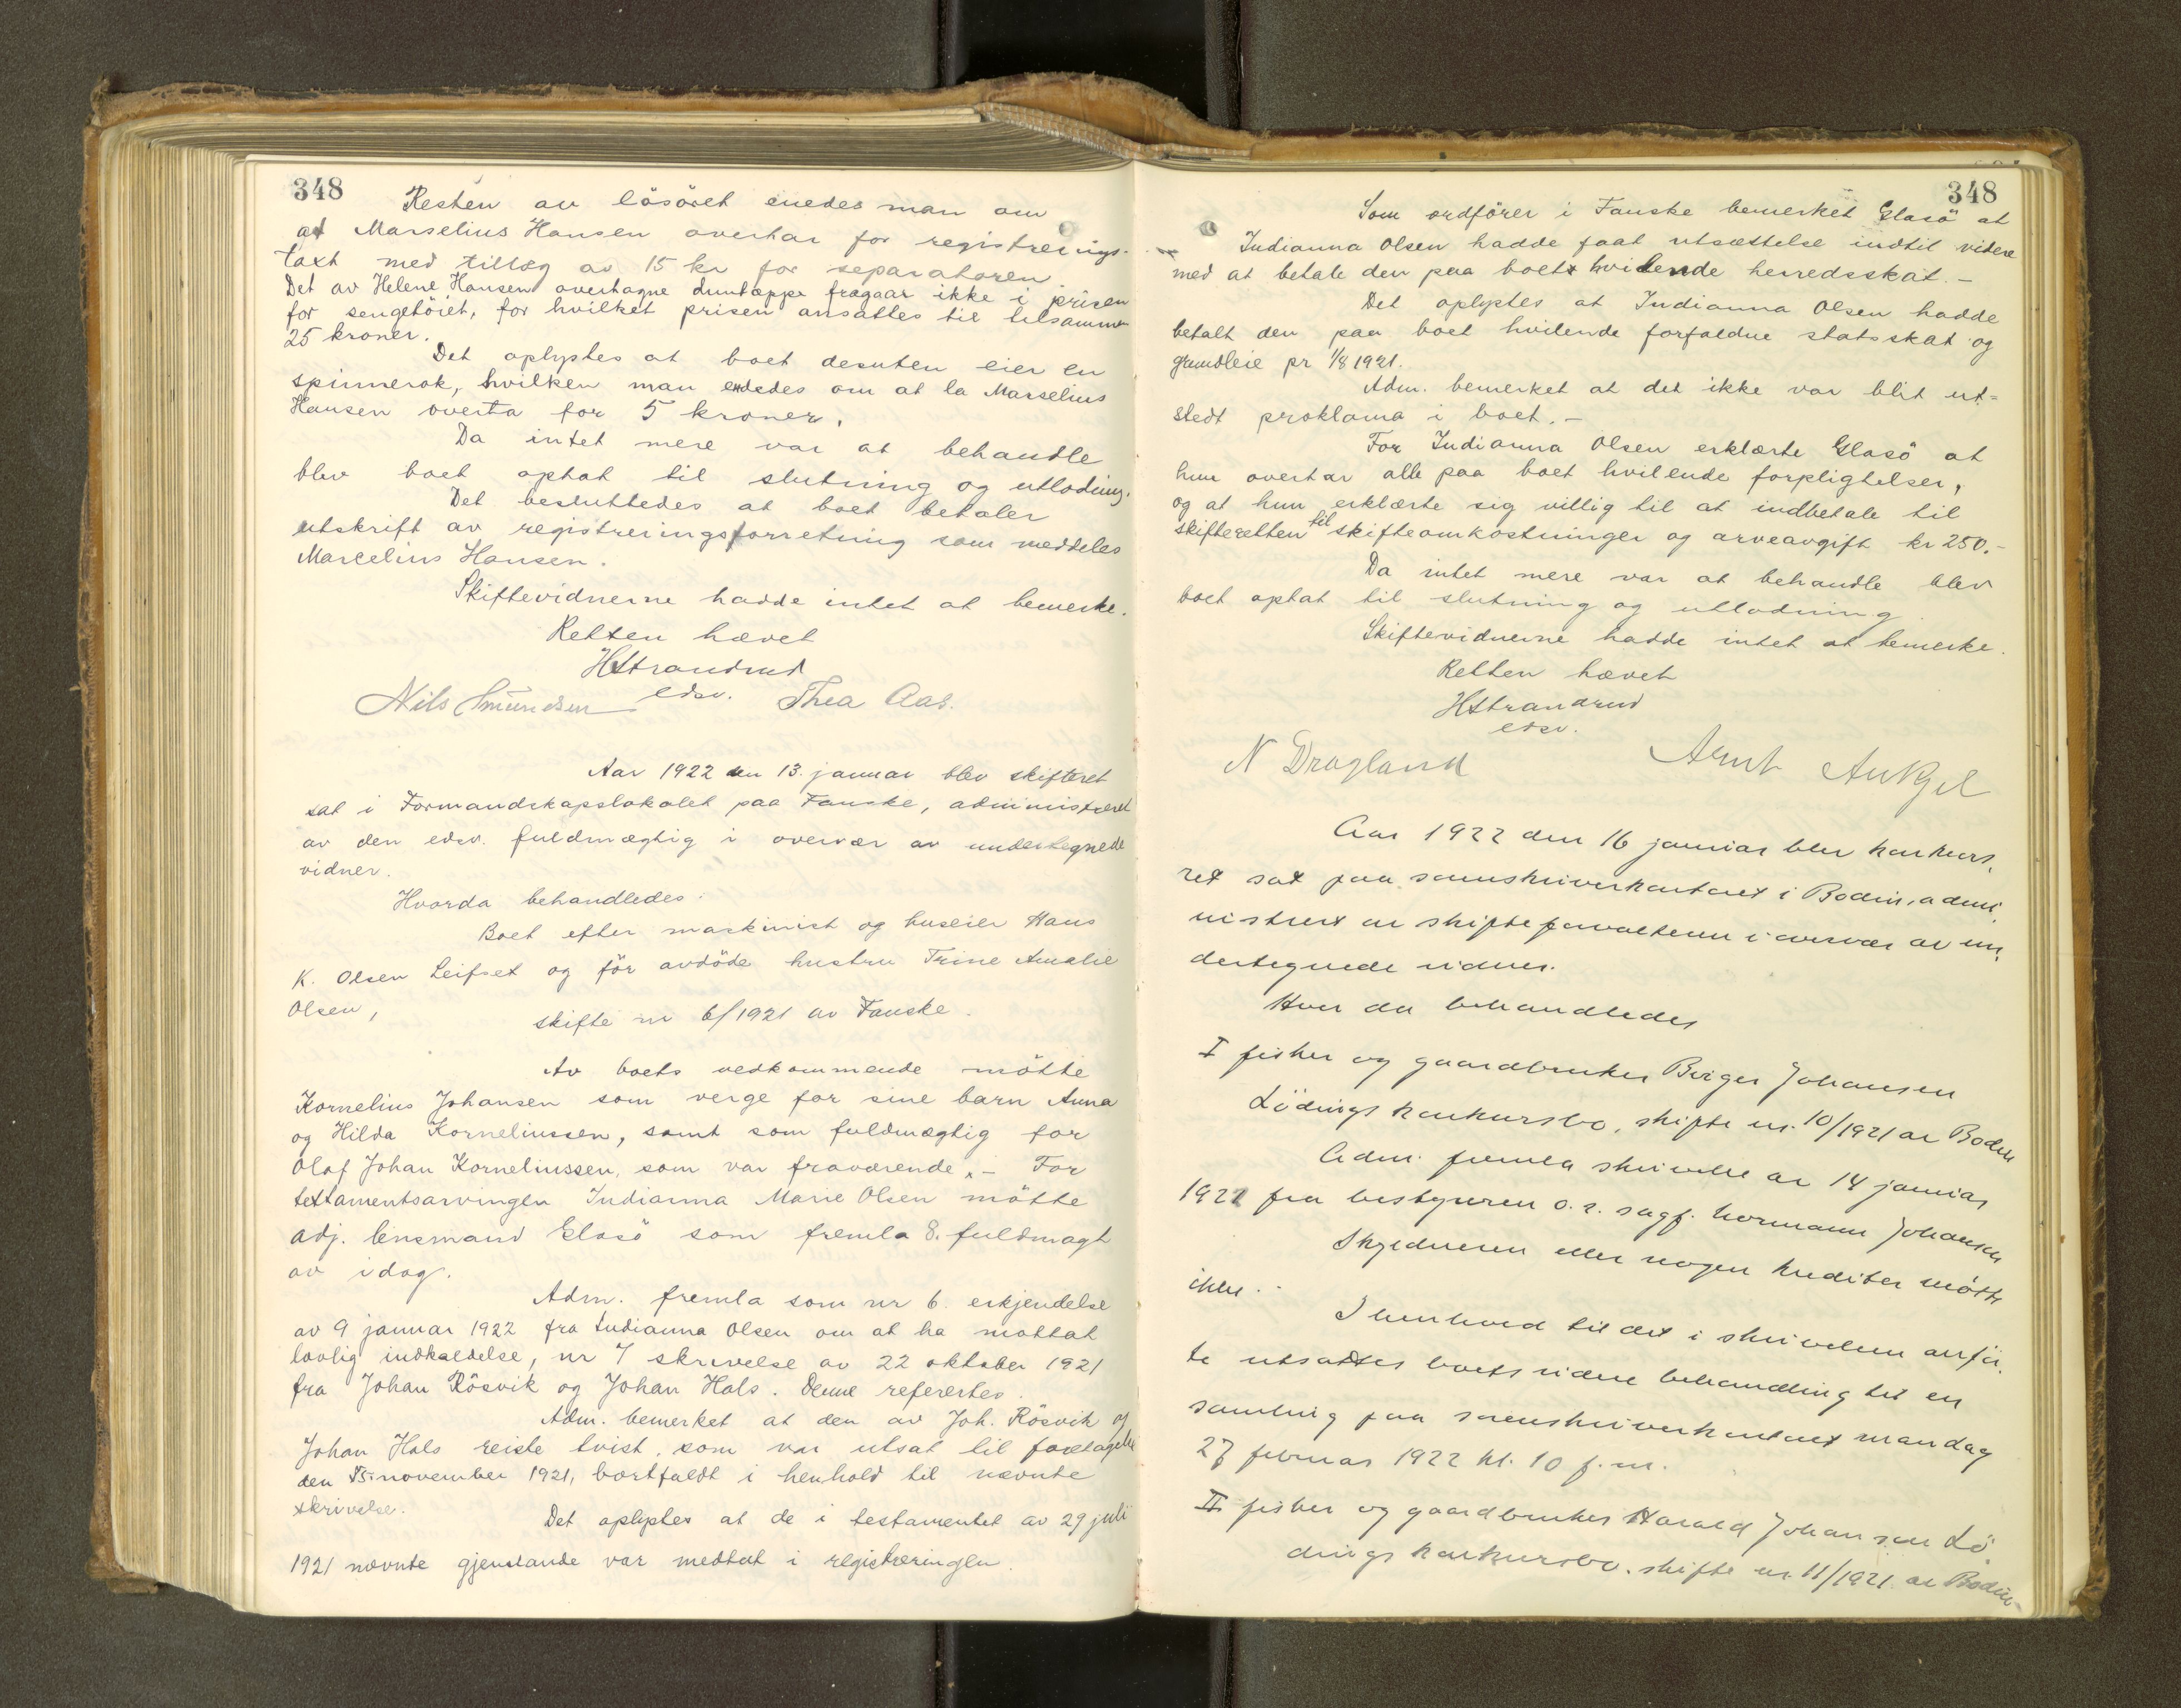 348
Resten av løsøret enedes man om
at Marselius Hansen overtar for registrerings-
taxt med tillæg av 15 kr for separatoren
Det av Helene Hansen overtagne duntæppe fragaar ikke i prisen
for sengetöiet, for hvilket prisen ansattes til tilsammen
25 kroner.
Det oplystes at boet desuten eier en
spinnerok, hvilken man enedes om at la Marselius
Hansen overta for 5 kroner.
Da intet mere var at behandle
blev boet optat til slutning og utlodning.
Det besluttedes at boet betaler
utskrift av registreringsforretning som meddeles
Marcelius Hansen.
Skiftevidnerne hadde intet at bemerke.
Retten hævet
HStrandrud
edsv.
Nils Amundsen Thea Aas.
Aar 1922 den 13. januar blev skifteret
sat i Formandskapslokalet paa Fauske, administreret
av den edsv. fuldmægtig i overvær av undertegnede
vidner.
Hvorda behandledes:
Boet efter maskinist og huseier Hans
K. Olsen Leifset og för avdöde hustru Trine Amalie
Olsen,
skifte nr 6/1921 av Fauske.
Av boets vedkommende mötte
Kornelius Johansen som verge for sine barn Anna
og Hilda Korneliussen, samt som fuldmægtig for
Olaf Johan Korneliussen, som var fraværende. – For
testamentsarvingen Indianna Marie Olsen mötte
adj. lensmand Glasö som fremla 8. fuldmagt
av idag.
Adm. fremla som nr 6. erkjendelse
av 9 januar 1922 fra Indianna Olsen om at ha mottat
lovlig indkaldelse, nr 7 skrivelse av 22 oktober 1921
fra Johan Rösvik og Johan Hals. Denne referertes.
Adm. bemerket at den av Joh. Rösvik og
Johan Hals reiste tvist, som var utsat til foretagelse
den 15. november 1921, bortfaldt i henhold til nævnte
skrivelse.
Det oplystes at de i testamentet av 29 juli
1921 nævnte gjenstande var medtat i registreringen.
348
Som ordförer i Fauske bemerket Glasö at
Indianna Olsen hadde faat utsættelse indtil videre
med at betale den paa boet hvilende herredsskat. –
Det oplystes at Indianna Olsen hadde
betalt den paa boet hvilende forfaldne statsskat og
grundleie pr 1/8 1921.
Adm. bemerket at det ikke var blit ut=
stedt proklama i boet. –
For Indianna Olsen erklærte Glasö at
hun overtar alle paa boet hvilende forpligtelser,
og at hun erklærte sig villig til at indbetale til
skifteretten til skifteomkostninger og arveavgift kr 250.–
Da intet mere var at behandle blev
boet optat til slutning og utlodning
Skiftevidnerne hadde intet at bemerke.
Retten hævet
HStrandrud
edsv.
N Dragland Arnt
Aar 1922 den 16 januar blev konkurs,
ret sat paa sorenskriverkontoret i Bodin, admi,
nistrert av skifteforvalteren i overvær av un,
dertegnede vidner.
Hvor da behandledes
I fisker og gaardbruker Birger Johansen
Lödings konkursbo, skifte nr. 10/1921 av Bodin
Adm. fremla skrivelse av 14 januar
1922 fra bestyreren o.r. sagf. Hermann Johansen
Skyldneren eller nogen kreditor mötte
ikke. –
I henhold til det i skrivelsen anför,
te utsattes boets videre behandling til en
samling paa sorenskriverkontoret mandag
27 februar 1922 kl. 10 f.m.
II fisker og gaardbruker Harald Johansen Lö,
dings konkursbo. skifte nr. 11/1921 av Bodin